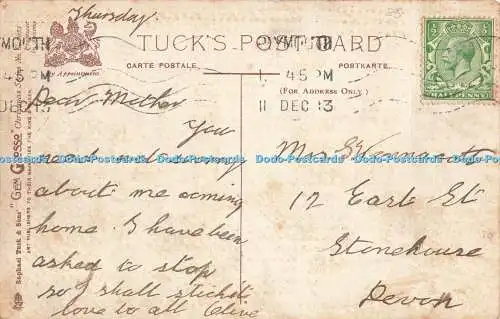 Thursday.
TUCK'S POST CARD
CARTE POSTALE
(FOR ADDRESS ONLY.)
By Appointment
PLYMOUTH
4 45 PM
11 DEC 13
Raphael Tuck & Sons' "GEM GLOSSO"
HALF PENNY
Dear Mother
You
need not worry
about me coming
home. I have been
asked to stop
so shall stick it
love to all Clive
Mrs
12 Earls St
Stonehouse
Devon
Dodo-Postcards Dodo-Postcards Dodo-Postcards Dodo-Postcards